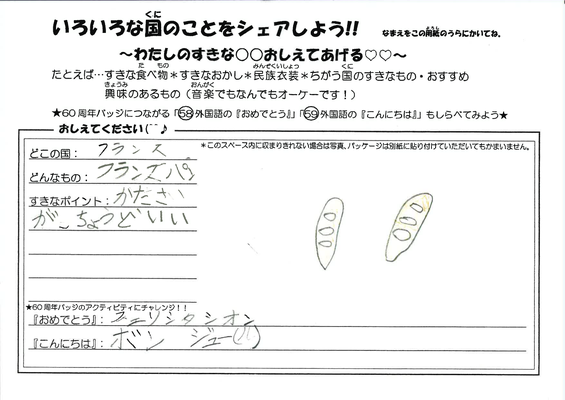 いろいろな国のことをシェアしよう!! なまえをこの用紙のうらにかいてね。
～わたしのすきな〇〇おしえてあげる♡♡～
たとえば…すきな食べ物＊すきなおかし＊民族衣装＊ちがう国のすきなもの・おすすめ
興味のあるもの（音楽でもなんでもオーケーです！）
★60周年バッジにつながる「58外国語の『おめでとう』」「59外国語の『こんにちは』」もしらべてみよう★
おしえてください(^^♪
どこの国：フランス
＊このスペース内に収まりきれない場合は写真、パッケージは別紙に貼り付けていただいてもかまいません。
どんなもの：フランスパン
すきなポイント：かたさい
が、ちょうどいい
★60周年バッジのアクティビティにチャレンジ！！
『おめでとう』：フェリシタシオン
『こんにちは』：ボン ジュール